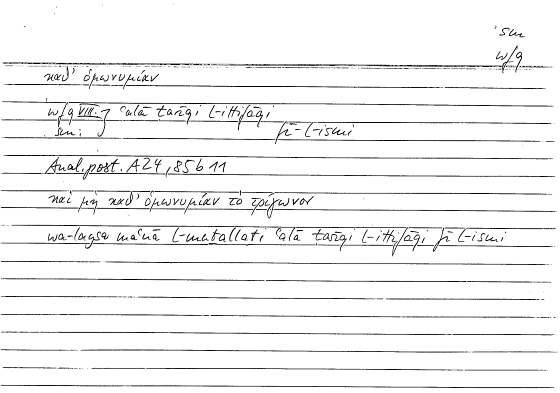 sm
wfq
καθ' ὁμωνυμίαν
wfq VIII: } ʿalā ṭarīqi l-ittifāqi
sm: fī l-ismi
Anal. post. A 24, 85 b 11
καὶ μὴ καθ' ὁμωνυμίαν τὸ τρίγωνον
wa-laysa maʿnā l-muṯallaṯi ʿalā ṭarīqi l-ittifāqi fī l-ismi